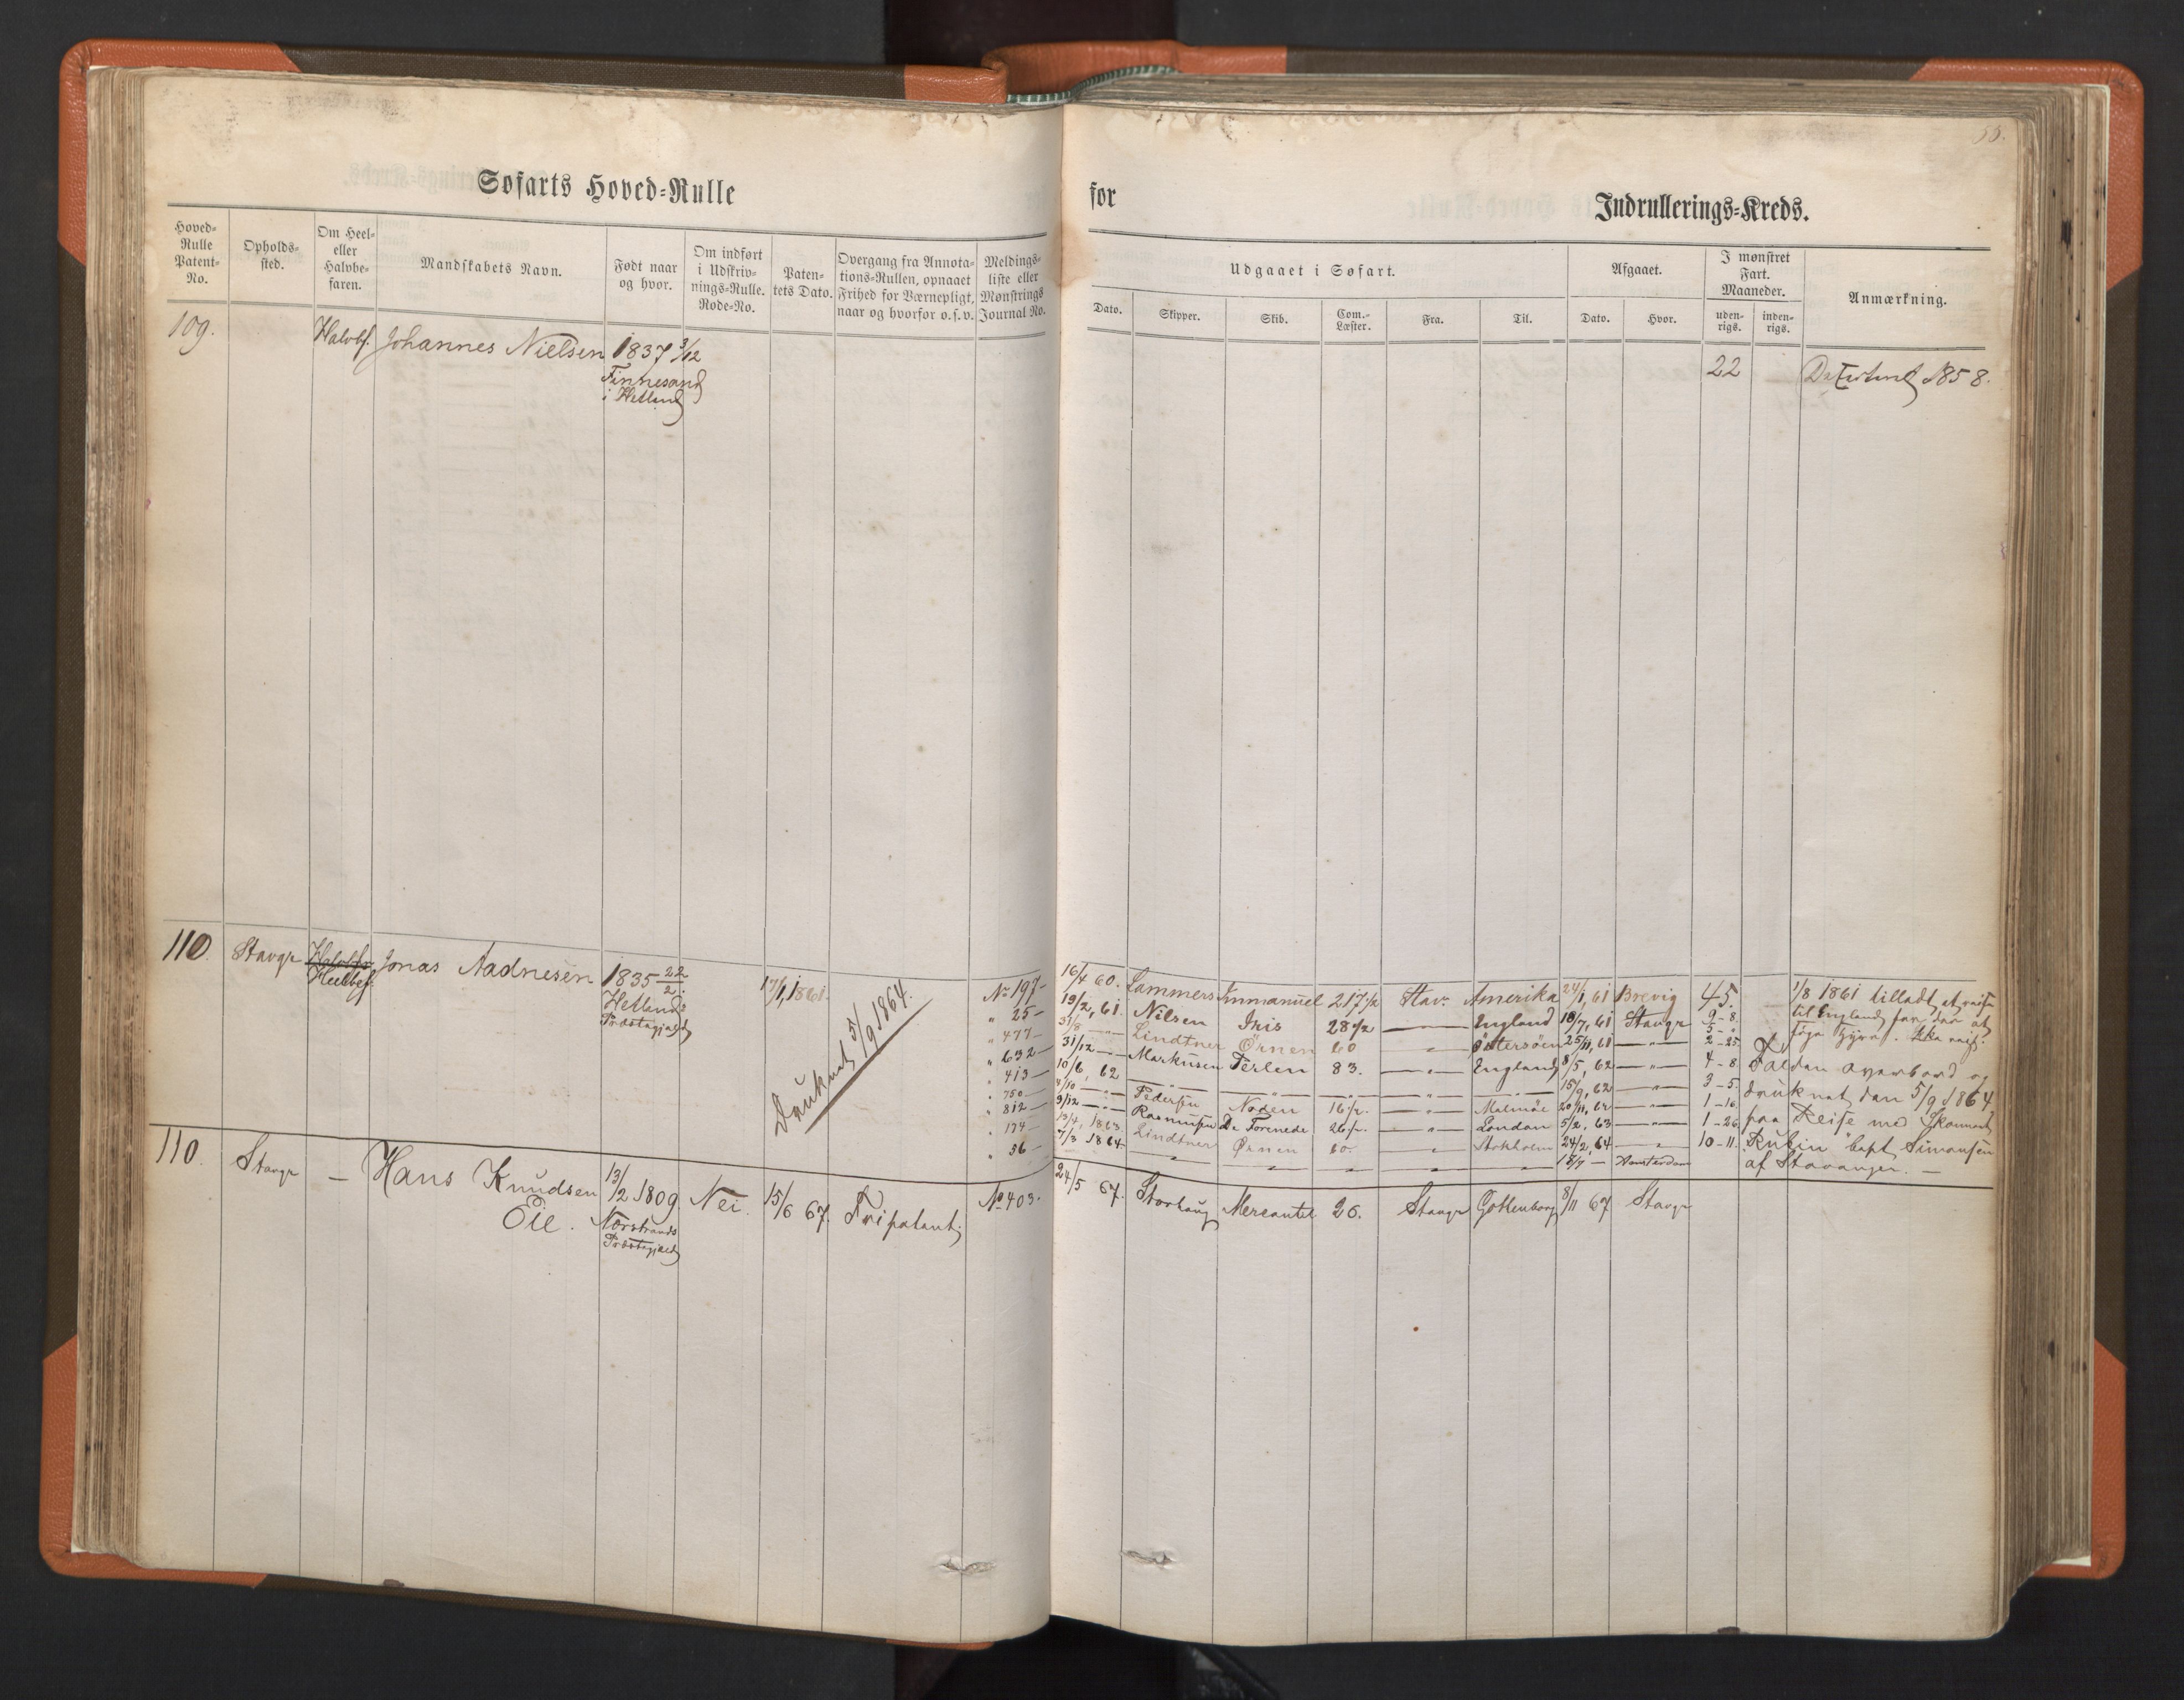 55.
Søfarts Hoved-Rulle
for
Indrullerings-Kreds.
Hoved-
Rulle
Patent-
No.
Opholds-
sted.
Om Heel-
eller
Halvbe-
faren.
Mandskabets Navn.
Født naar
og hvor.
Om indført
i Udskriv-
nings-Rulle.
Rode-No.
Paten-
tets Dato.
Overgang fra Annota-
tions-Rullen, opnaaet
Frihed for Værnepligt,
naar og hvorfor o.s.v.
Meldings-
liste eller
Mønstrings
Journal No.
Udgaaet i Søfart.
Dato.
Skipper.
Skib.
Com.-
Læster.
Fra.
Til.
Afgaaet.
Dato.
Hvor.
I mønstret
Fart.
Maaneder.
uden-
rigs.
inden-
rigs.
Anmærkning.
109. Halvbf. Johannes Nielsen 1837 3/12
Finnesand
i Hetland
22 1858.
110. Stavgr Halvbf. Jonas Aadnesen 1835 22/2. 17/1, 1861.
Heelbef.
Hetlands
Præstegjeld
Druknet 5/9 1864.
No 197- 16/4 60. Lammers Immanuel 217 1/2 Stav. Amerika 24/1, 61 Brevig 45.
" 25- 19/2, 61. Nilsen Iris 28 1/2 — England 18/7, 61 Stavgr 9-8.
" 477- 31/8 — Lindtner Örnen 60 — " 25/11, 61 — " — 2-25
" 632- 31/12 — Markusen Perlen 83. — " — England 8/5, 62 — " — 4-8
" 413- 10/6, 62 — " — — " — — " — 15/9, 62 — " — 3-5.
" 750- 4/10 — " — Pedersen — " — Malmöe 20/11, 62 — " — 1-16
" 812- 9/12 — " — Rasmussen De Forenede 26 — " — London 5/2, 63 — " — 1-26
" 174- 13/4, 1863. Lindtner Ørnen 60. — " — Stokholm 24/2, 64 — " — 10-11.
" 36- 7/3 1864. — " — — " — — " — 18/9 — Amsterdam
1/8 1861 tilladt at reise
til England for der at
tage Hyre.
Falden overbord og
druknet den 5/9 1864
paa Reise med Skonnert
Rubin capt. Simonsen
af Stavanger. —
110. Stavgr — Hans Knudsen 13/2 1809. Nei. 15/6 67. Fripatent; No 403. 24/5 67. Storhaug Mercantil 26. Stavgr Gottenborg 8/11 67 Stavgr
Eie. Nærstrands
Præstegjeld